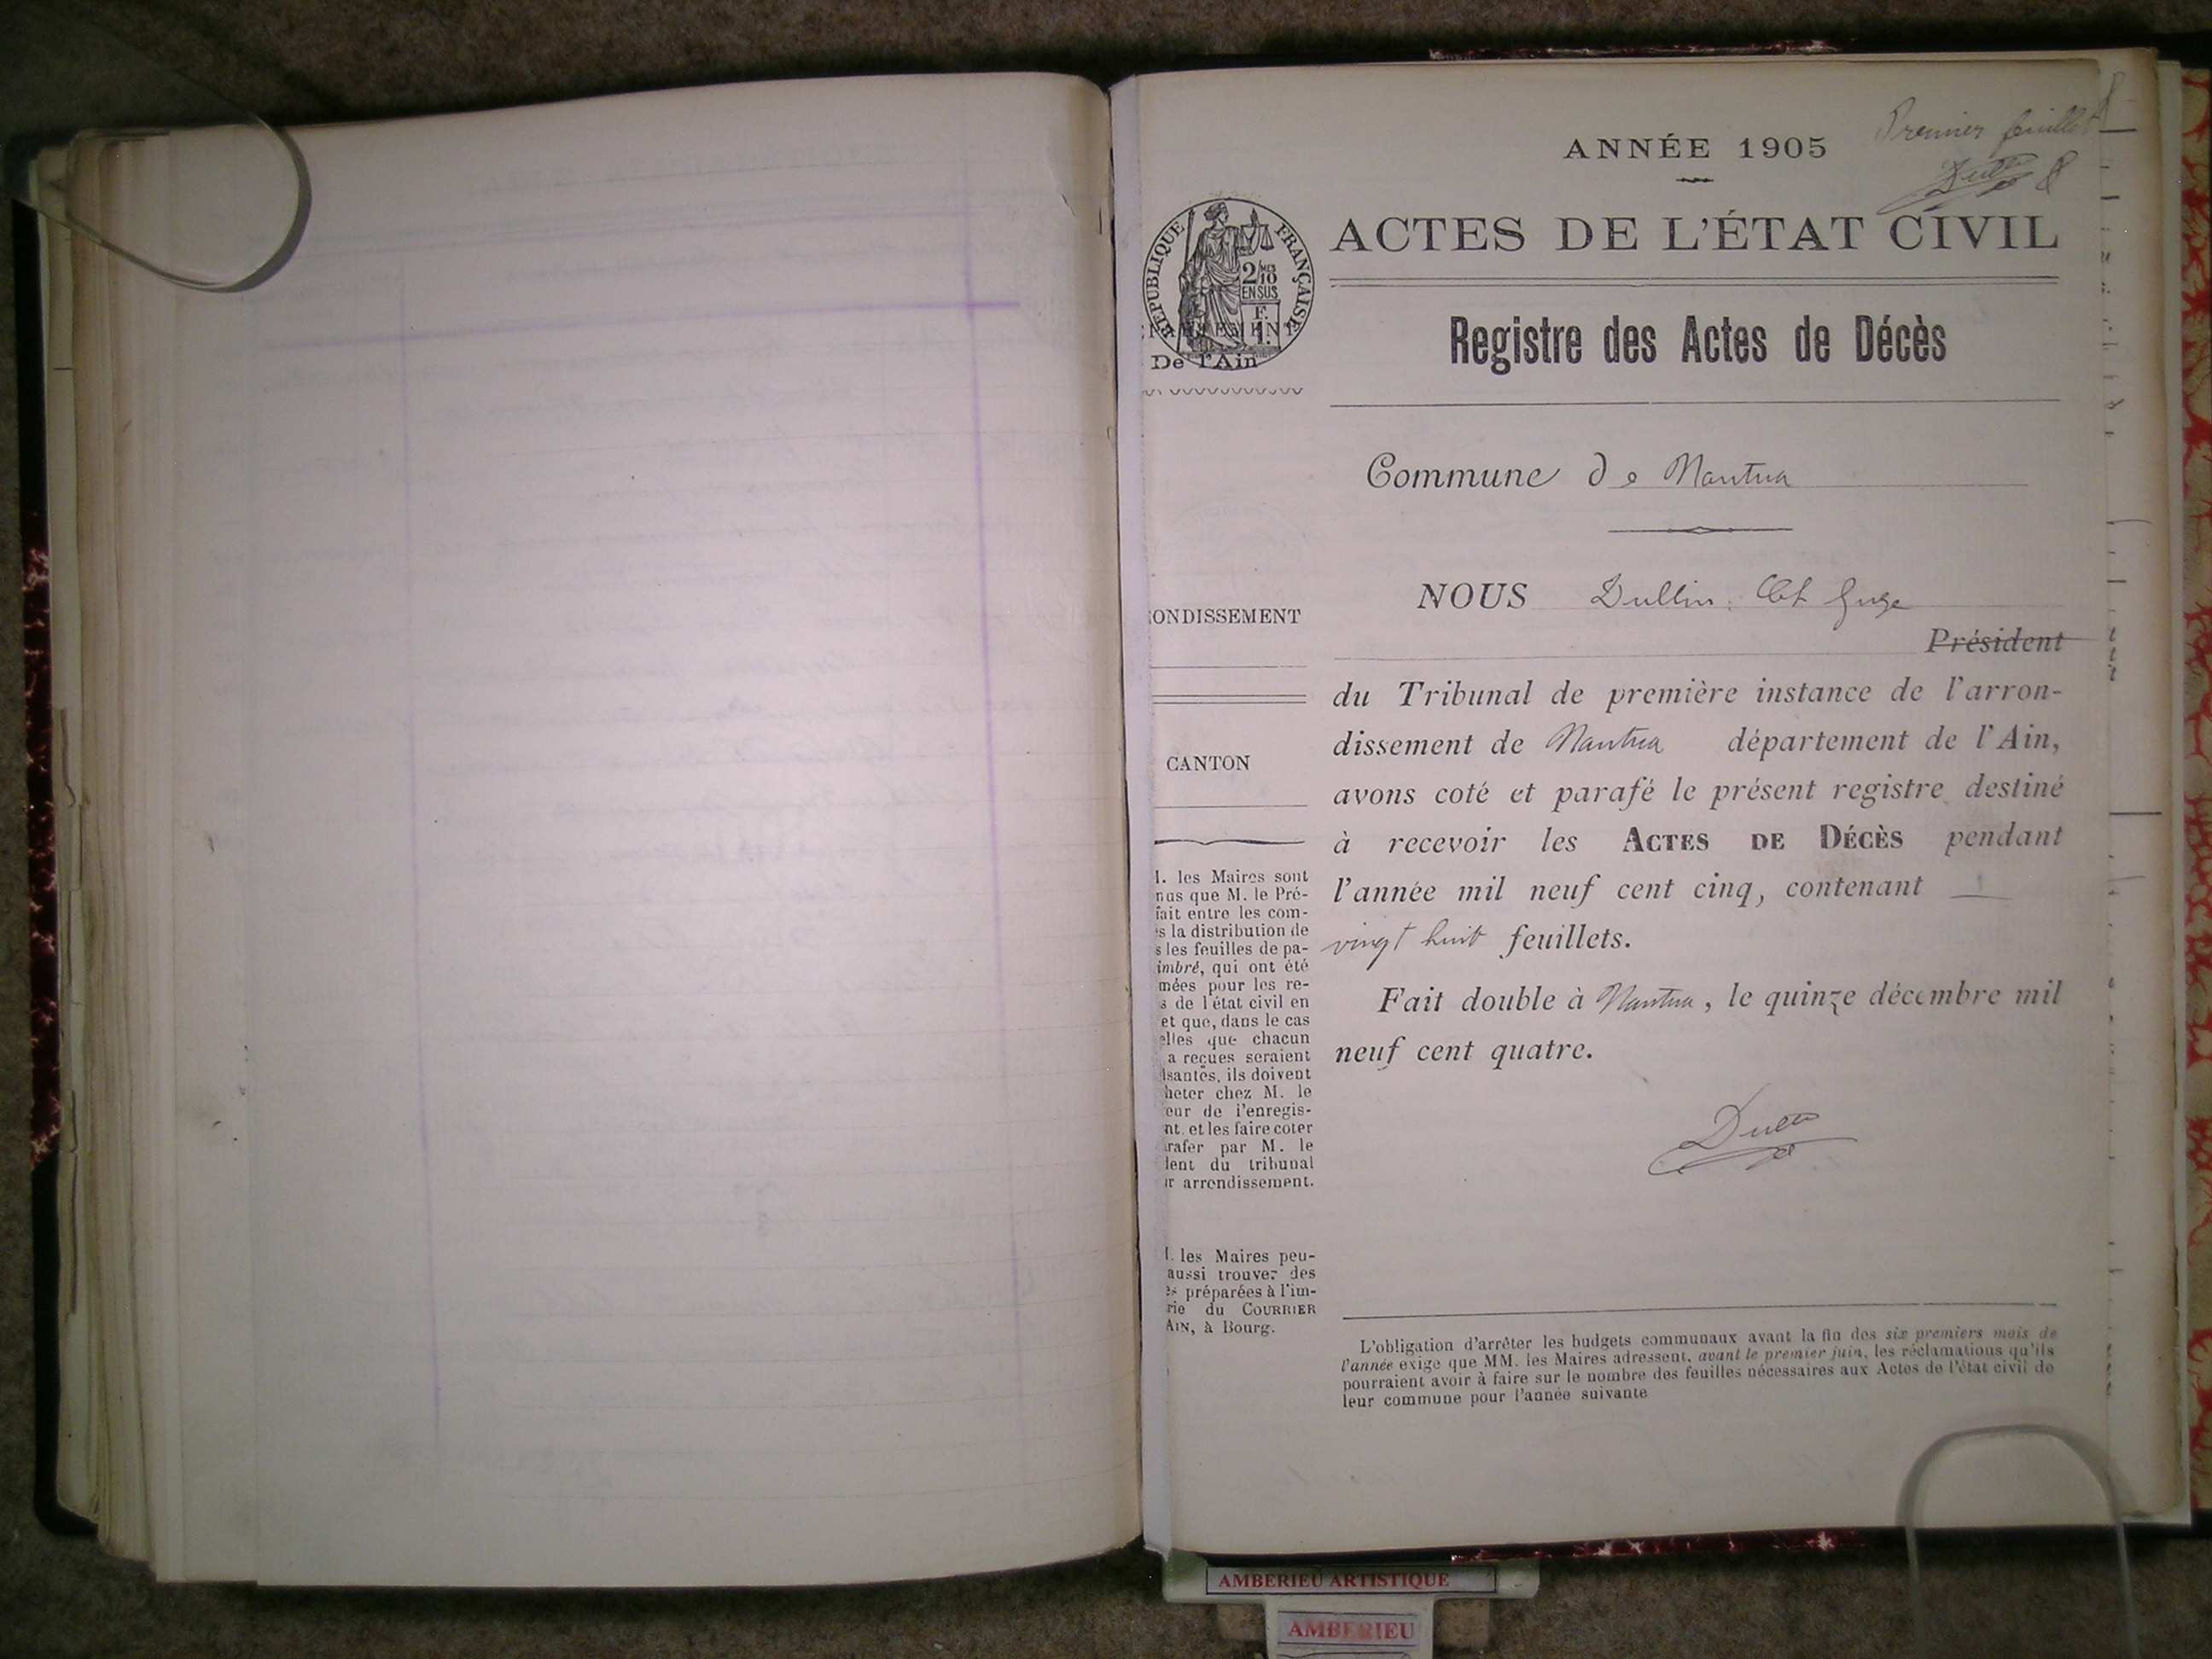 Premier feuillet
ANNÉE 1905
ACTES DE L'ÉTAT CIVIL
RÉPUBLIQUE FRANÇAISE
2/10 MES
EN SUS
F.
1.
De l'Ain
Registre des Actes de Décès
Commune de Nantua
NOUS Dullin
Président
du Tribunal de première instance de l'arron-
dissement de Nantua département de l'Ain,
avons coté et parafé le présent registre destiné
à recevoir les ACTES DE DÉCÈS pendant
l'année mil neuf cent cinq, contenant
vingt huit feuillets.
Fait double à Nantua, le quinze décembre mil
neuf cent quatre.
ONDISSEMENT
CANTON
I. les Maires sont
nus que M. le Pré-
fait entre les com-
s la distribution de
s les feuilles de pa-
imbré, qui ont été
mées pour les re-
s de l'état civil en
et que, dans le cas
elles que chacun
a reçues seraient
isantes, ils doivent
heter chez M. le
eur de l'enregis-
nt. et les faire coter
arafer par M. le
lent du tribunal
ir arrondissement.
I. les Maires peu-
aussi trouver des
es préparées à l'im-
rie du COURRIER
AIN, à Bourg.
L'obligation d'arrêter les budgets communaux avant la fin des six premiers mois de
l'année exige que MM. les Maires adressent, avant le premier juin, les réclamations qu'ils
pourraient avoir à faire sur le nombre des feuilles nécessaires aux Actes de l'état civil de
leur commune pour l'année suivante
AMBERIEU ARTISTIQUE
AMBERIEU